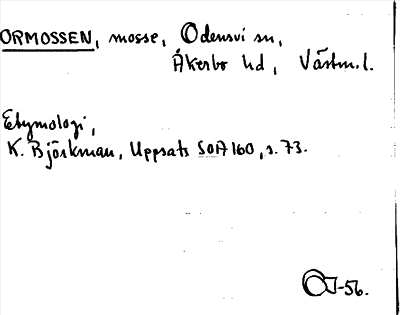 ORMOSSEN, mosse, Odensvi sn,
Åkerbo hd, Västm.l.
Etymologi,
K. Björkman, Uppsats SOA 160, s. 73.
OJ-56.